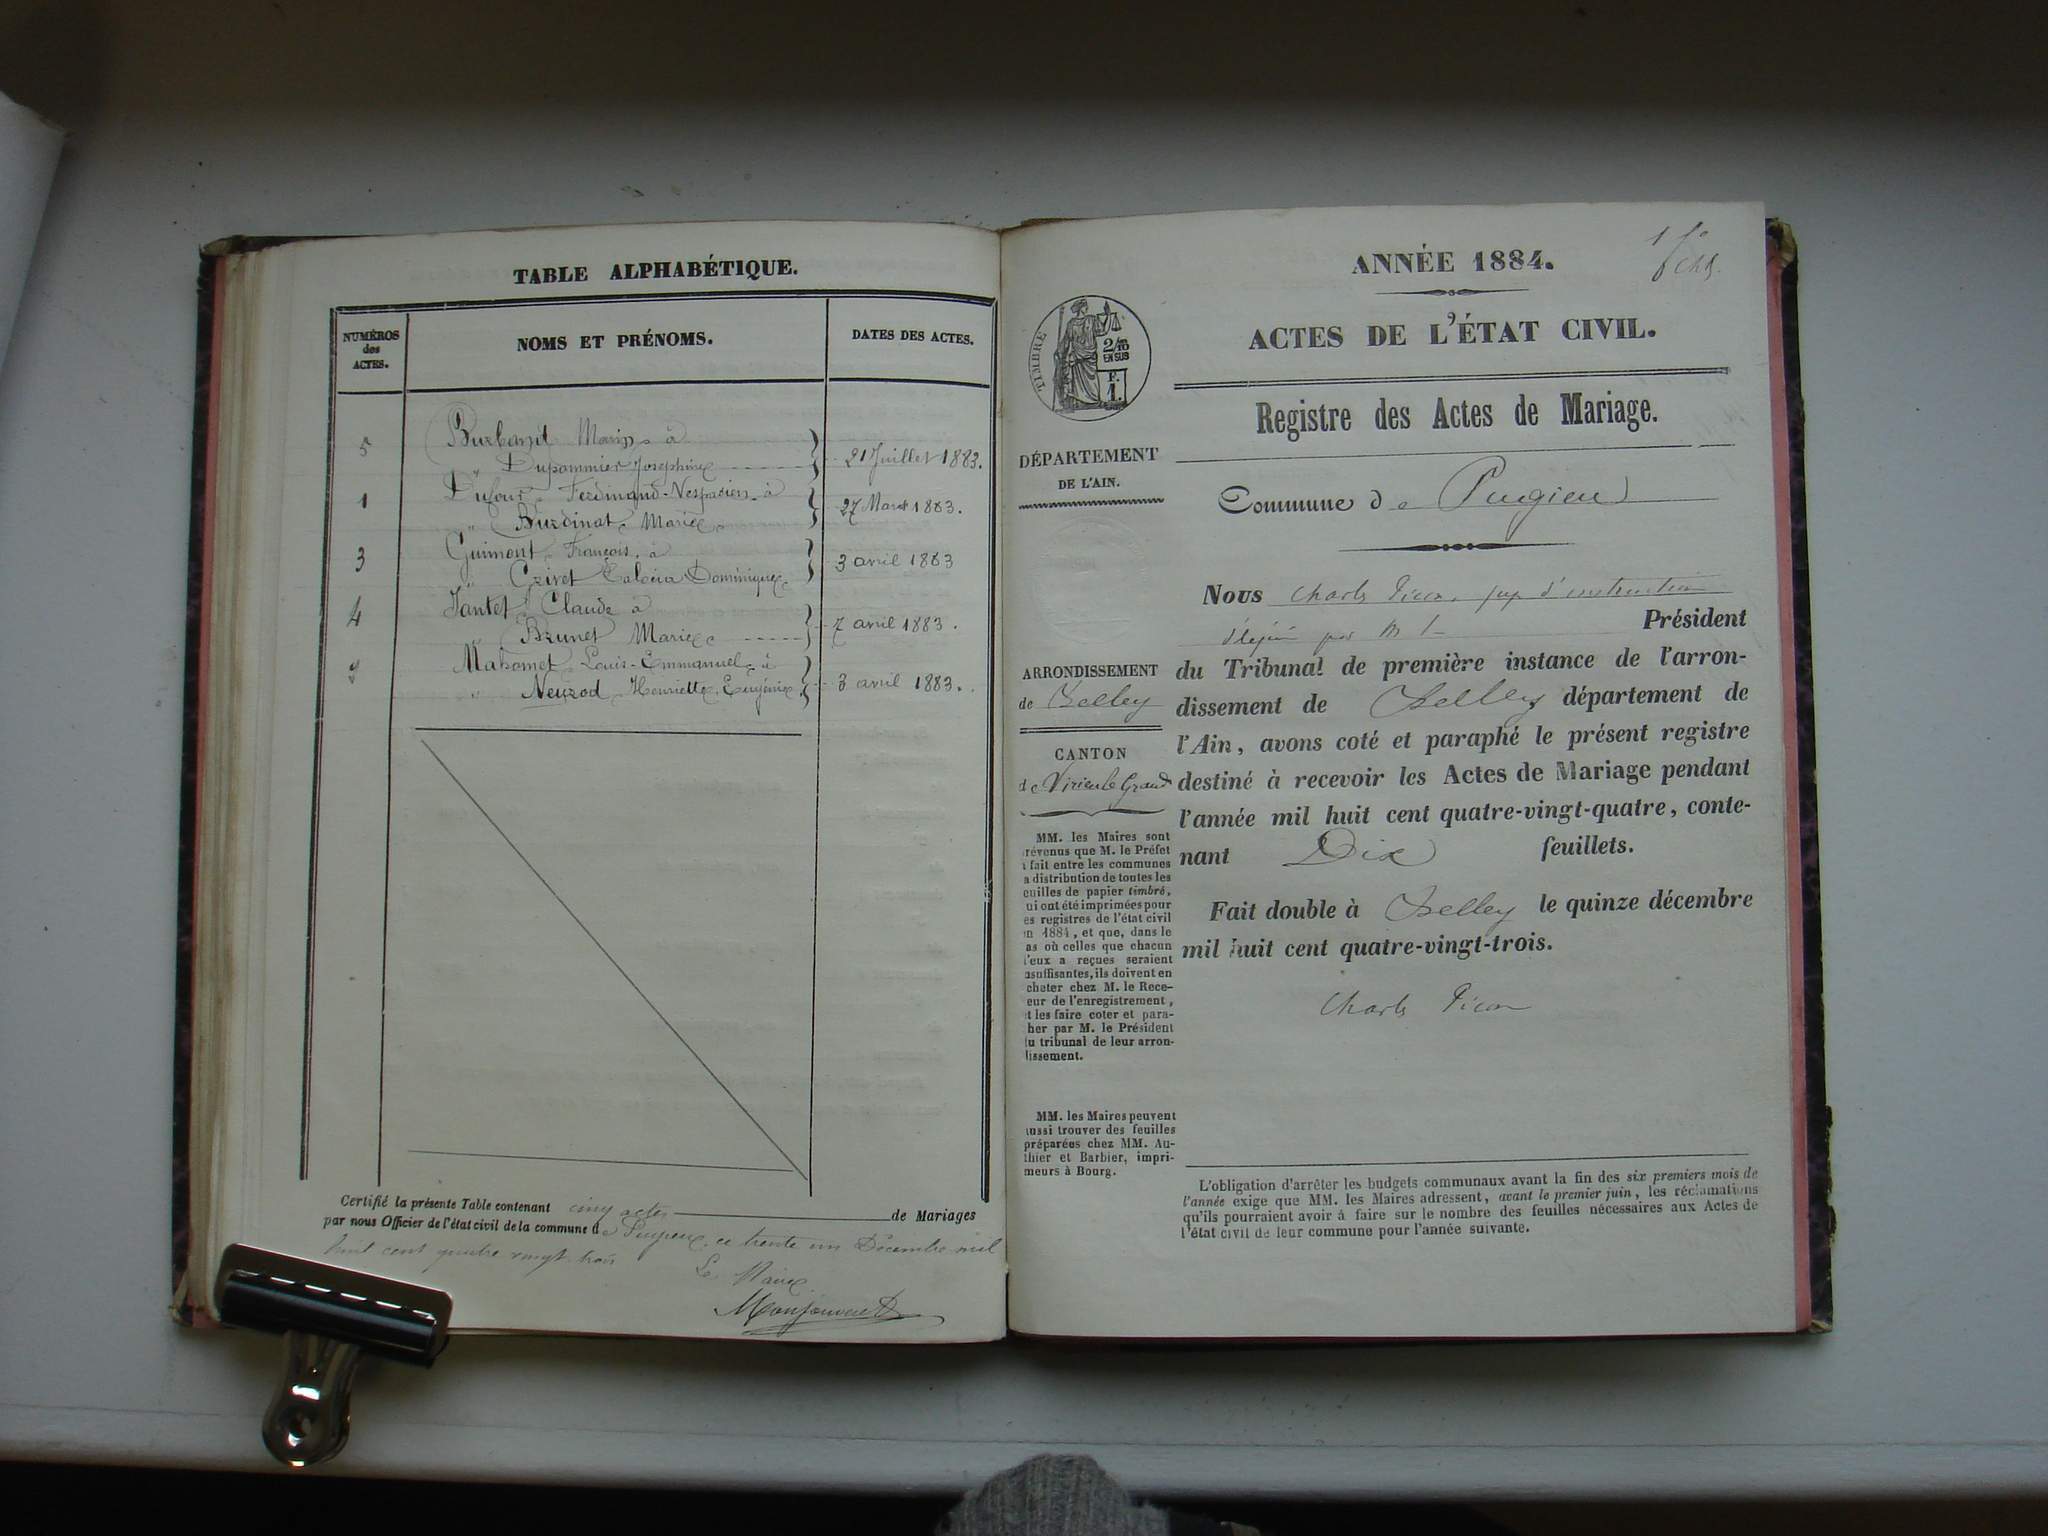 TABLE ALPHABÉTIQUE.
NUMÉROS
des
ACTES.
NOMS ET PRÉNOMS.
DATES DES ACTES.
5 Burband Marin à
" Dupommier Joséphine 21 Juillet 1883.
1 Dufour Ferdinand-Vespasien à
" Burdinat Marie 27 Mars 1883.
3 Guimont François à
" Grivet Dominique 3 avril 1883
4 Jantet Claude à
" Brunet Marie 7 avril 1883.
2 Mahomet Louis-Emmanuel à
" Neurod Henriette Eugénie 3 avril 1883.
Certifié la présente Table contenant cinq actes de Mariages
par nous Officier de l'état civil de la commune de Pugieu, ce trente un Décembre mil
huit cent quatre vingt trois
Le Maire
ANNÉE 1884.
1 fo
ACTES DE L'ÉTAT CIVIL.
TIMBRE
2/10
EN SUS
F.
1.
Registre des Actes de Mariage.
DÉPARTEMENT
DE L'AIN.
Commune de Pugieu
Nous Charles Picon, juge d'instruction
délégué par M. l- Président
du Tribunal de première instance de l'arron-
dissement de Belley département de
l'Ain, avons coté et paraphé le présent registre
destiné à recevoir les Actes de Mariage pendant
l'année mil huit cent quatre-vingt-quatre, conte-
nant Dix feuillets.
Fait double à Belley le quinze décembre
mil huit cent quatre-vingt-trois.
Charles Picon
ARRONDISSEMENT
de Belley
CANTON
de Virieu le Grand
MM. les Maires sont
révenus que M. le Préfet
fait entre les communes
a distribution de toutes les
euilles de papier timbré,
ui ont été imprimées pour
es registres de l'état civil
n 1884, et que, dans le
as où celles que chacun
'eux a reçues seraient
nsuffisantes, ils doivent en
cheter chez M. le Rece-
eur de l'enregistrement,
t les faire coter et para-
her par M. le Président
u tribunal de leur arron-
issement.
MM. les Maires peuvent
ussi trouver des feuilles
préparées chez MM. Au-
thier et Barbier, impri-
meurs à Bourg.
L'obligation d'arrêter les budgets communaux avant la fin des six premiers mois de
l'année exige que MM. les Maires adressent, avant le premier juin, les réclamations
qu'ils pourraient avoir à faire sur le nombre des feuilles nécessaires aux Actes de
l'état civil de leur commune pour l'année suivante.